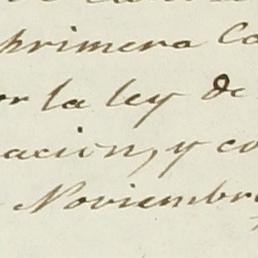 primera Co
or la ley de
acion, y co
Noviembre